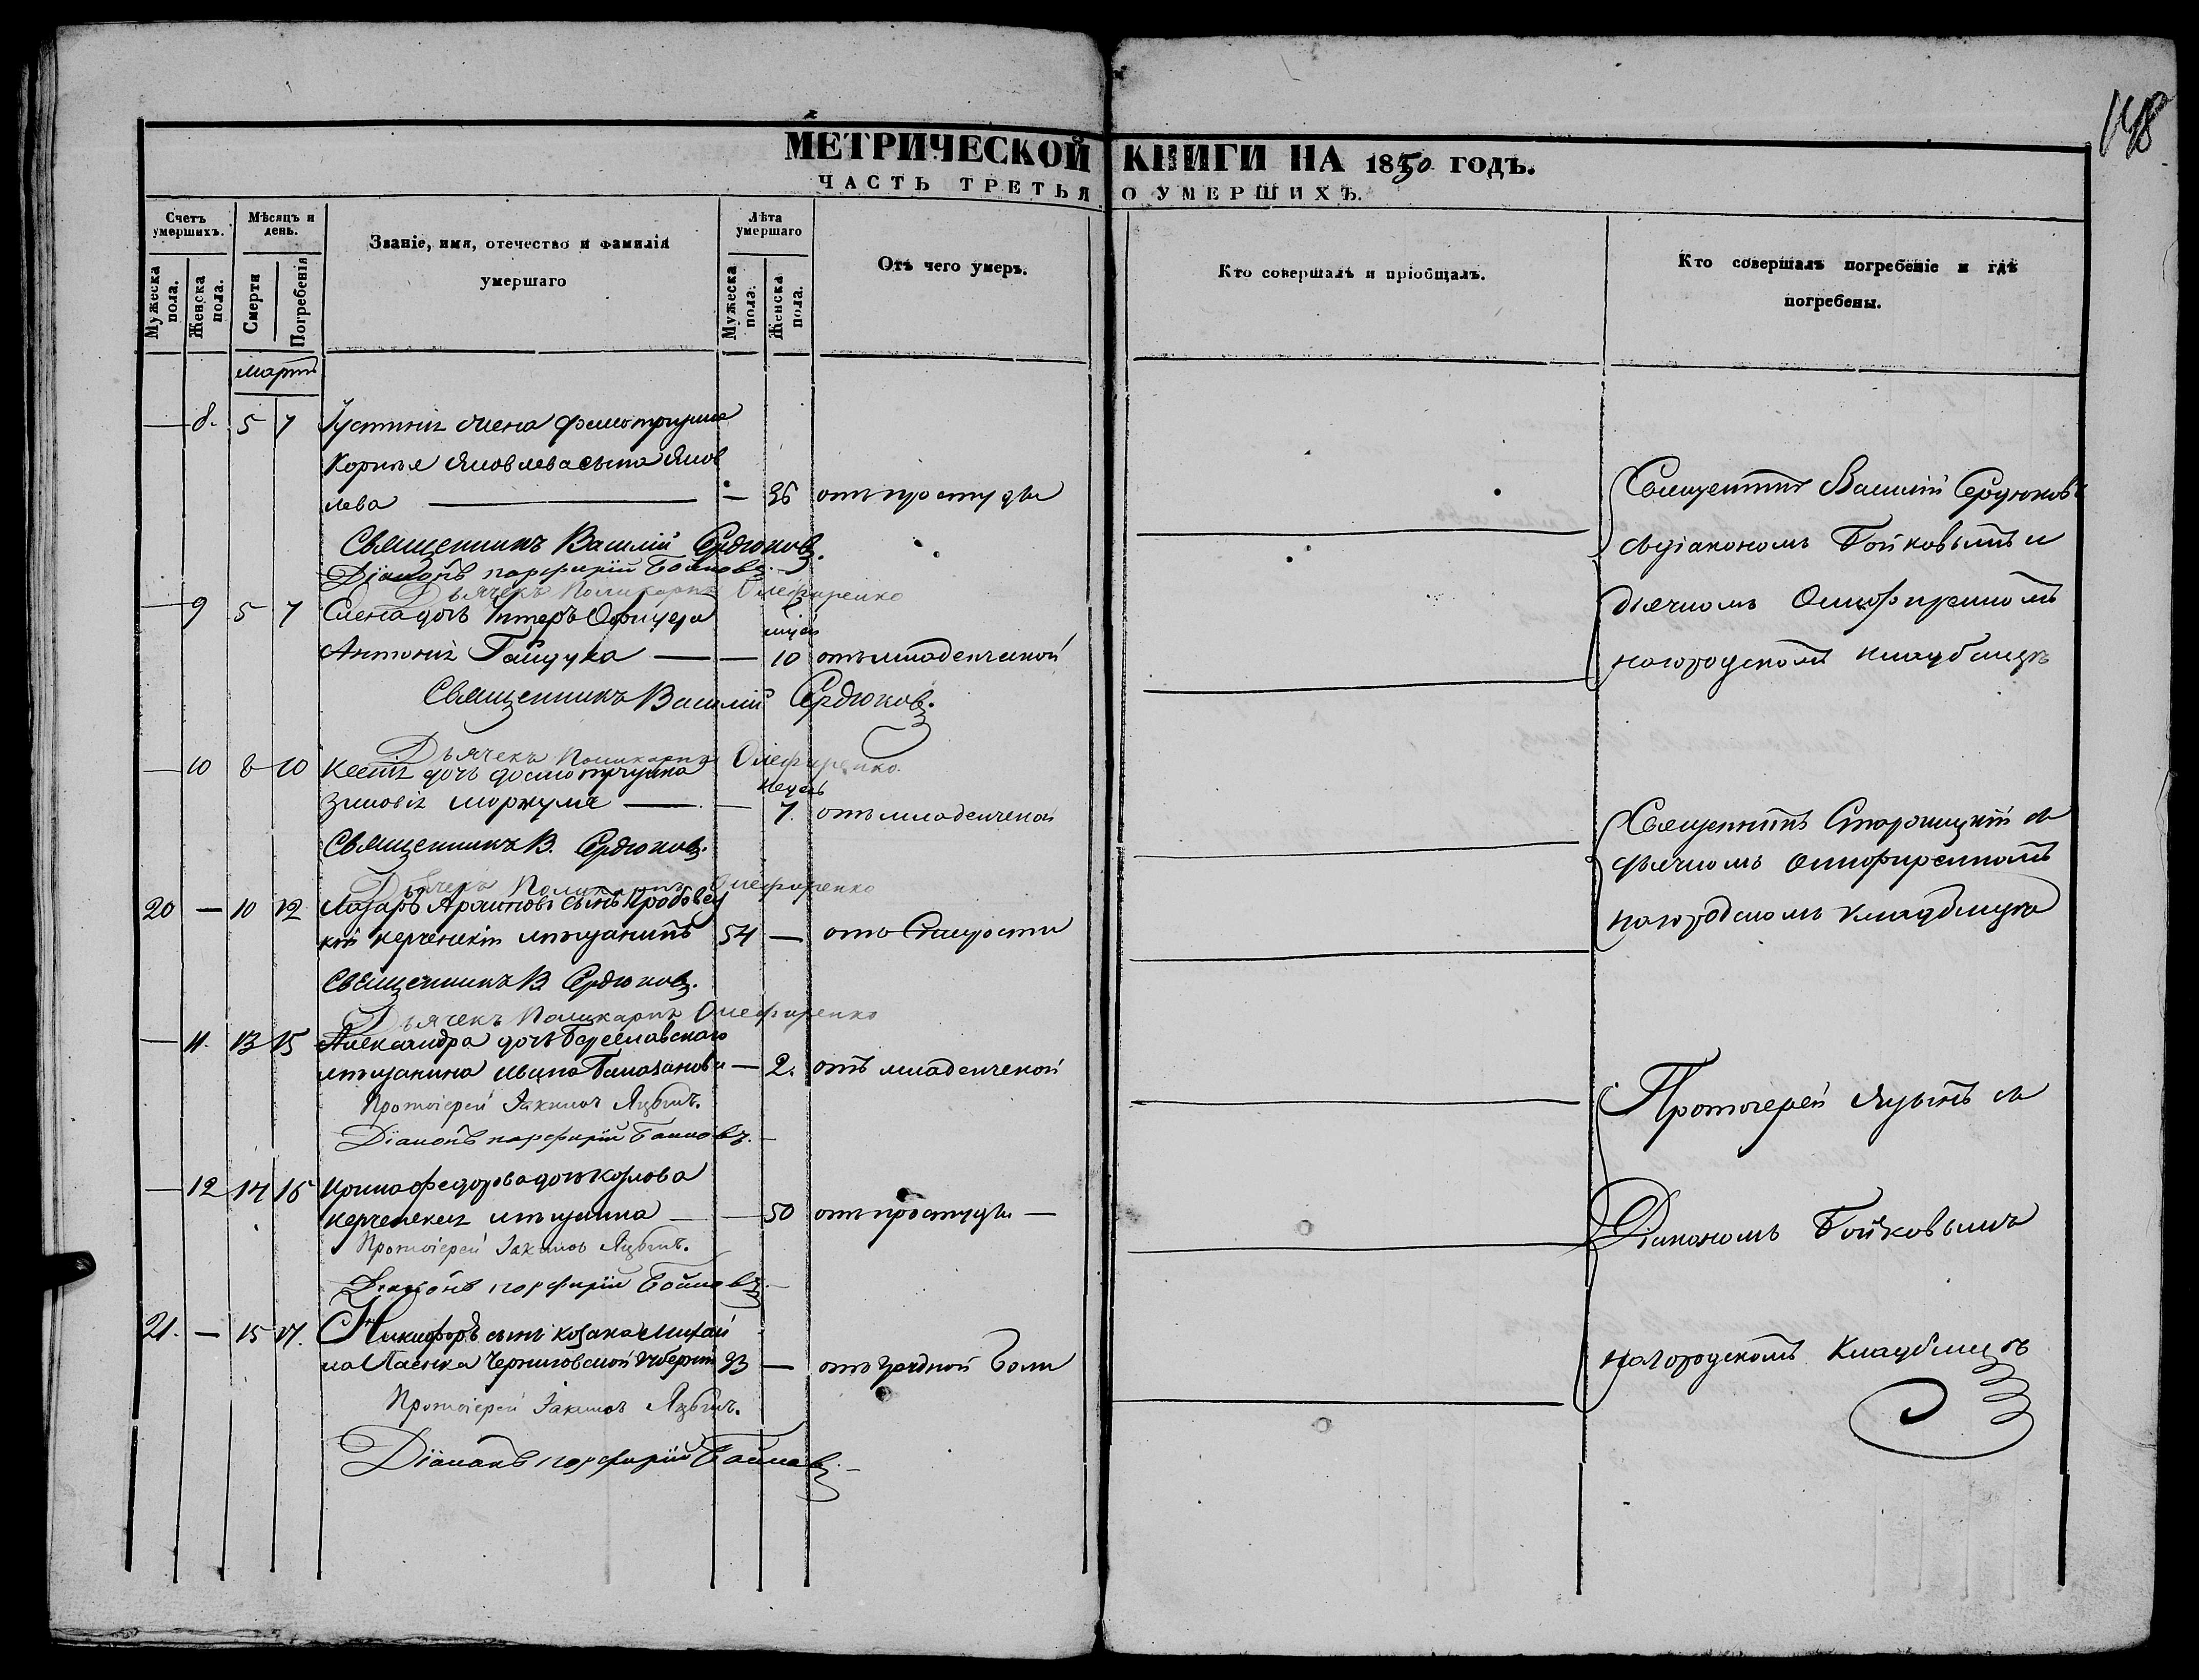 148
МЕТРИЧЕСКОЙ КНИГИ НА 1850 ГОДЪ.
ЧАСТЬ ТРЕТЬЯ О УМЕРШИХЪ.
Счетъ умершихъ.
Мужеска пола.
Женска пола.
Мѣсяцъ и день.
Смерти
Погребенія
Званіе, имя, отечество и фамилія умершаго
Лѣта умершаго
Мужеска пола.
Женска пола.
Отъ чего умеръ.
Кто совершалъ и пріобщалъ.
Кто совершалъ погребеніе и гдѣ погребены.
Мартъ
— 8. 5 7 Іустинія жена
Корнѣя Яковлева сына Яков
лева — — 36 отъ простуды
Священникъ Василій Сердюковъ.
Діаконъ Парфирій Бойковъ.
Дьячекъ Поликарпъ Олефиренко
— 9 5 7 Елена дочь Унтеръ Офицера
Антонія Гайдука — — 10 отъ младенческой
Священникъ Василій Сердюковъ.
Дьячекъ Поликарпъ Олефиренко.
— 10 8 10 Ксенія дочь досмотрщика
недѣль
Зиновія — — 7. отъ младенческой
Священникъ В. Сердюковъ.
Дьячекъ Поликарпъ Олефиренко
20 — 10 12 Лазарь сынъ
кій керченскій мѣщанинъ 54 — отъ старости
Священникъ В. Сердюковъ.
Дьячекъ Поликарпъ Олефиренко
— 11. 13 15 Александра дочь Береславскаго
мѣщанина Ивана — 2. отъ младенческой
Протоіерей Іакимъ
Діаконъ Парфирій Бойковъ.
— 12 14 16 Ирина Федорова дочь Козлова
керченская мѣщанка — — 50 отъ простуды —
Протоіерей Іакимъ
Діаконъ Парфирій Бойковъ.
21. — 15 17. Никифоръ сынъ козака Михаи
ла Черниговской Губерніи 33 — отъ грудной боли
Протоіерей Іакимъ
Діаконъ Парфирій Бойковъ.
Священникъ Василій Сердюковъ
съ діакономъ Бойковымъ и
дьячкомъ Олефиренкомъ
на городскомъ кладбищѣ
Священникъ Старицкій съ
дьячкомъ Олефиренкомъ
на городскомъ кладбищѣ
Протоіерей съ
Діакономъ Бойковымъ
на городскомъ кладбищѣ